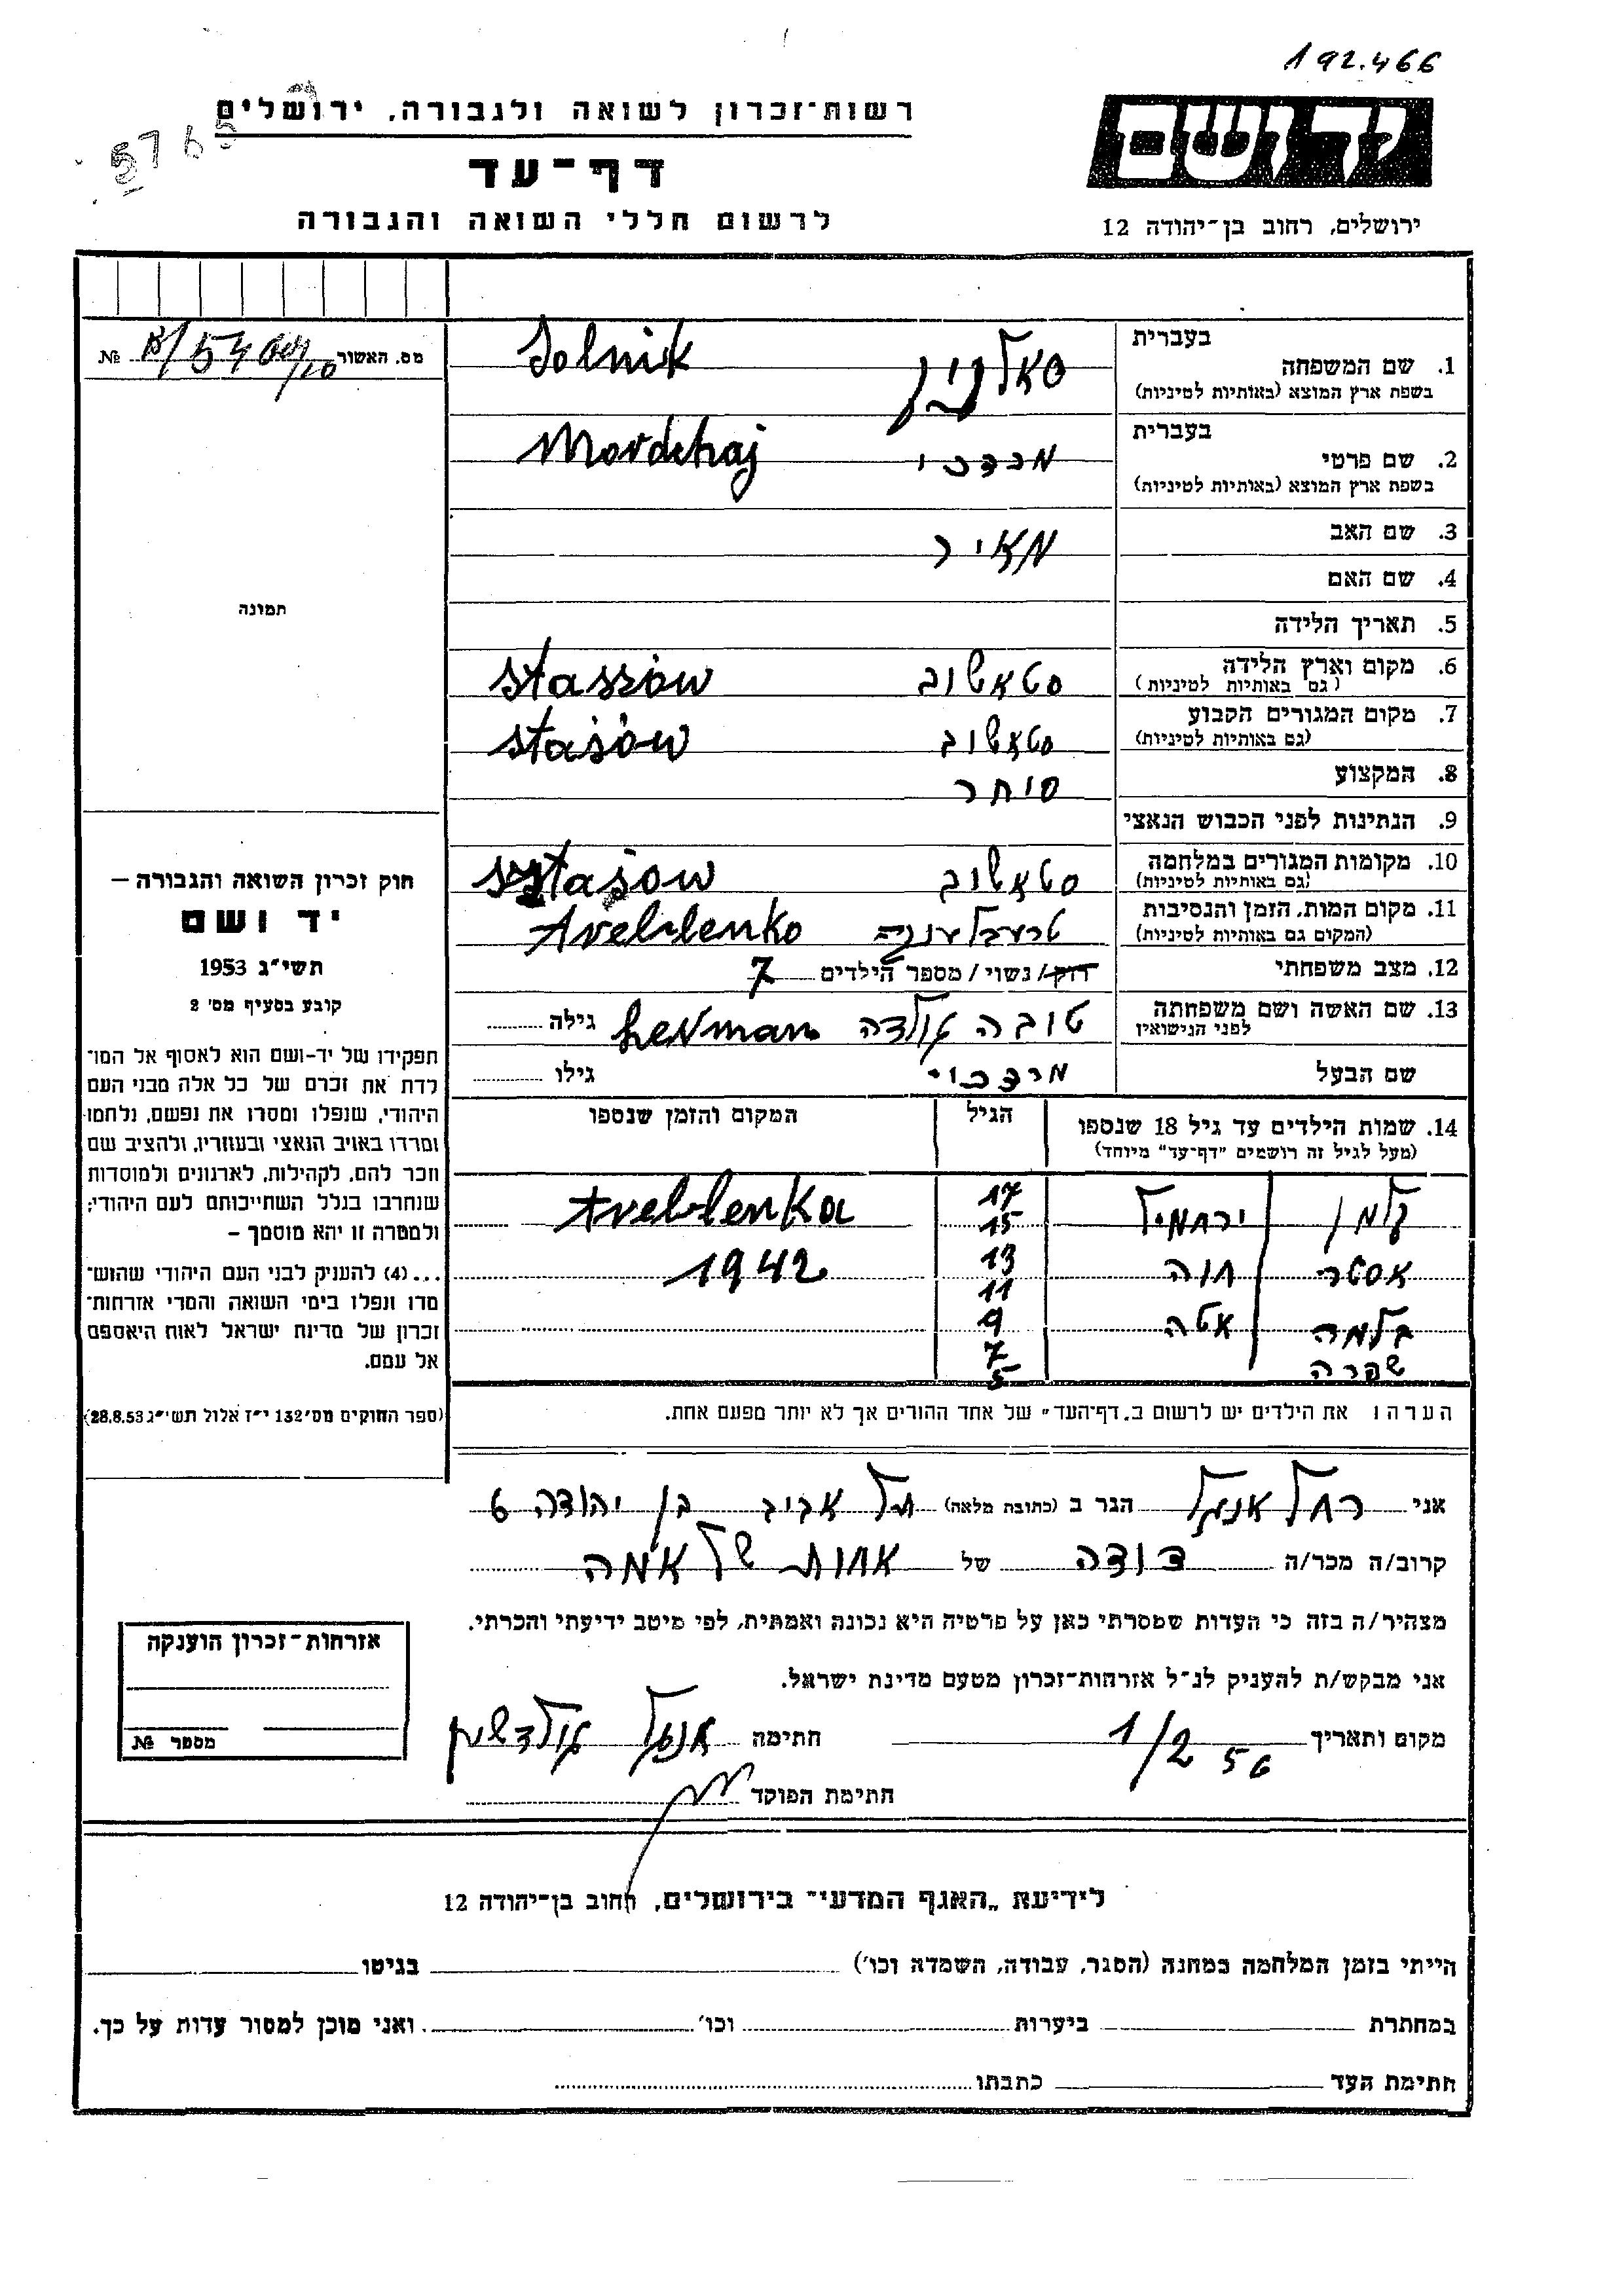 192.466
יד ושם
ירושלים, רחוב בן־יהודה 12
רשות־זכרון לשואה ולגבורה, ירושלים
דף־עד
לרשום חללי השואה והגבורה
5765
מס. האשור №
בעברית
1. שם המשפחה סאלניק Solnik
בשפת ארץ המוצא (באותיות לטיניות)
בעברית
2. שם פרטי מרדכי Mordchaj
בשפת ארץ המוצא (באותיות לטיניות)
3. שם האב מאיר
4. שם האם
5. תאריך הלידה
6. מקום וארץ הלידה סטאשוב Stassów
(גם באותיות לטיניות)
7. מקום המגורים הקבוע סטאשוב Stasów
(גם באותיות לטיניות)
8. המקצוע סוחר
9. הנתינות לפני הכבוש הנאצי
10. מקומות המגורים במלחמה סטאשוב
(גם באותיות לטיניות)
11. מקום המות, הזמן והנסיבות טרעבלענקה Treblenko
(המקום גם באותיות לטיניות)
12. מצב משפחתי רוק/נשוי/מספר הילדים 7
13. שם האשה ושם משפחתה טובה גולדה Lerman גילה
לפני הנישואין
שם הבעל מרדכי גילו
14. שמות הילדים עד גיל 18 שנספו הגיל המקום והזמן שנספו
(מעל לגיל זה רושמים "דף־עד" מיוחד)
קלמן ירחמיאל 17 15 Treblenka
אסטר חוה 13 11 1942
בלמה אטה 9 7
שפרה 5
הערה: את הילדים יש לרשום ב„דף־העד" של אחד ההורים אך לא יותר מפעם אחת.
תמונה
חוק זכרון השואה והגבורה —
יד ושם
תשי"ג 1953
קובע בסעיף מס' 2
תפקידו של יד-ושם הוא לאסוף אל המו־
לדת את זכרם של כל אלה מבני העם
היהודי, שנפלו ומסרו את נפשם, נלחמו
ומרדו באויב הנאצי ובעוזריו, ולהציב שם
וזכר להם, לקהילות, לארגונים ולמוסדות
שנחרבו בגלל השתייכותם לעם היהודי;
ולמטרה זו יהא מוסמך —
... (4) להעניק לבני העם היהודי שהוש־
מדו ונפלו בימי השואה והמרי אזרחות־
זכרון של מדינת ישראל לאות היאספם
אל עמם.
(ספר החוקים מס' 132 י"ז אלול תשי"ג 28.8.53)
אני רחל אנגל הגר ב (כתובת מלאה) תל אביב בן יהודה 6
קרוב/ה מכר/ה דודה של אחות של אמה
מצהיר/ה בזה כי העדות שמסרתי כאן על פרטיה היא נכונה ואמתית, לפי מיטב ידיעתי והכרתי.
אני מבקש/ת להעניק לנ"ל אזרחות־זכרון מטעם מדינת ישראל.
מקום ותאריך 1/2 56 חתימה
חתימת הפוקד
אזרחות־זכרון הוענקה
מספר №
לידיעת „האגף המדעי" בירושלים, רחוב בן־יהודה 12
הייתי בזמן המלחמה במחנה (הסגר, עבודה, השמדה וכו') בגיטו
במחתרת ביערות וכו' ואני מוכן למסור עדות על כך.
חתימת העד כתבתו